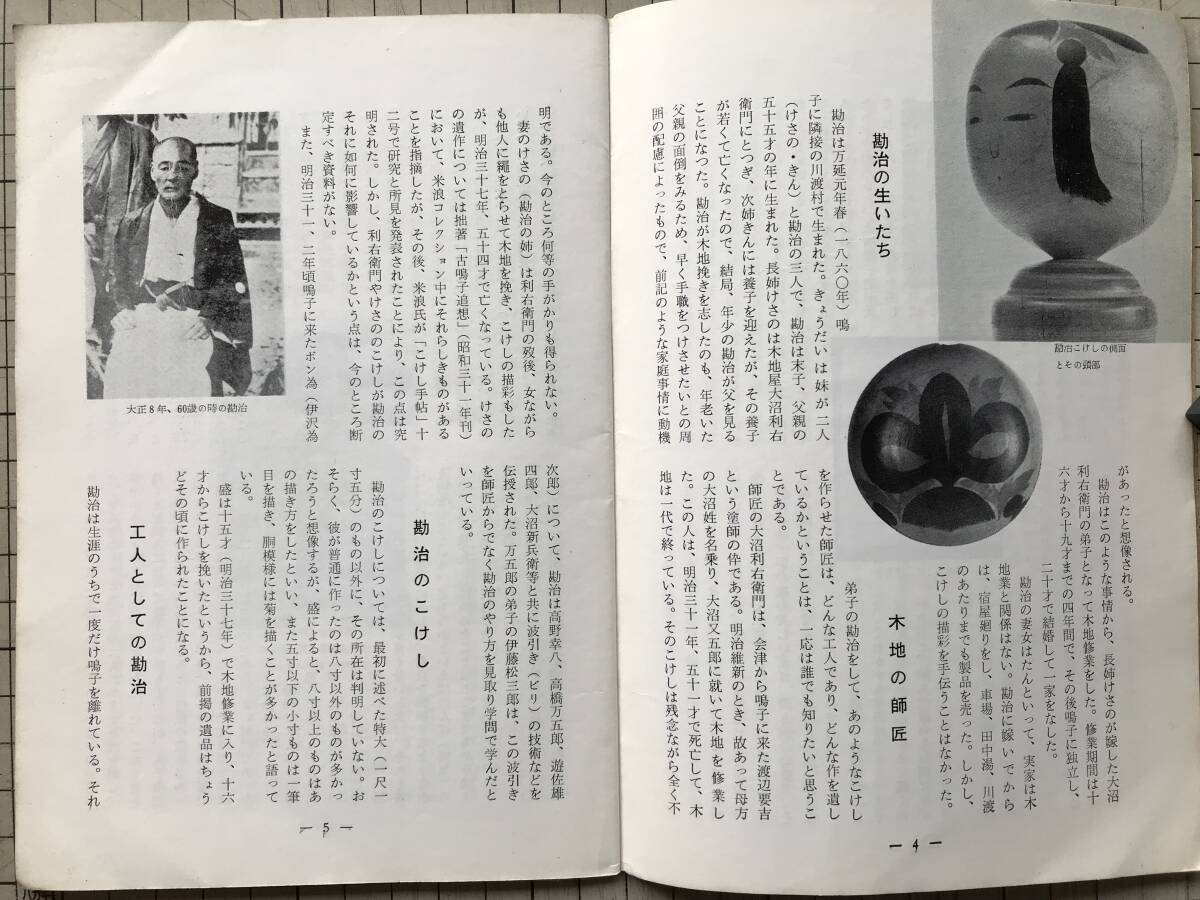 勘治こけしの側面
とその頭部
勘治の生いたち
勘治は万延元年春（一八六〇年）鳴
子に隣接の川渡村で生まれた。きょうだいは妹が二人
（けさの・きん）と勘治の三人で、勘治は末子、父親の
五十五才の年に生まれた。長姉けさのは木地屋大沼利右
衛門にとつぎ、次姉きんには養子を迎えたが、その養子
が若くて亡くなったので、結局、年少の勘治が父を見る
ことになった。勘治が木地挽きを志したのも、年老いた
父親の面倒をみるため、早く手職をつけさせたいとの周
囲の配慮によったもので、前記のような家庭事情に動機
があったと想像される。
勘治はこのような事情から、長姉けさのが嫁した大沼
利右衛門の弟子となって木地修業をした。修業期間は十
六才から十九才までの四年間で、その後鳴子に独立し、
二十才で結婚して一家をなした。
勘治の妻女はたんといって、実家は木
地業と関係はない。勘治に嫁いでから
は、宿屋廻りをし、車場、田中湯、川渡
のあたりまでも製品を売った。しかし、
こけしの描彩を手伝うことはなかった。
木地の師匠
弟子の勘治をして、あのようなこけし
を作らせた師匠は、どんな工人であり、どんな作を遺し
ているかということは、一応は誰でも知りたいと思うこ
とである。
師匠の大沼利右衛門は、会津から鳴子に来た渡辺要吉
という塗師の伜である。明治維新のとき、故あって母方
の大沼姓を名乗り、大沼又五郎に就いて木地を修業し
た。この人は、明治三十一年、五十一才で死亡して、木
地は一代で終っている。そのこけしは残念ながら全く不
— 4 —
明である。今のところ何等の手がかりも得られない。
妻のけさの（勘治の姉）は利右衛門の歿後、女ながら
も他人に縄をとらせて木地を挽き、こけしの描彩もした
が、明治三十七年、五十四才で亡くなっている。けさの
の遺作については拙著「古鳴子追想」（昭和三十一年刊）
において、米浪コレクション中にそれらしきものがある
ことを指摘したが、その後、米浪氏が「こけし手帖」十
二号で研究と所見を発表されたことにより、この点は究
明された。しかし、利右衛門やけさののこけしが勘治の
それに如何に影響しているかという点は、今のところ断
定すべき資料がない。
また、明治三十一、二年頃鳴子に来たボン為（伊沢為
大正8年、60歳の時の勘治
次郎）について、勘治は高野幸八、高橋万五郎、遊佐雄
四郎、大沼新兵衛等と共に波引き（ビリ）の技術などを
伝授された。万五郎の弟子の伊藤松三郎は、この波引き
を師匠からでなく勘治のやり方を見取り学問で学んだと
いっている。
勘治のこけし
勘治のこけしについては、最初に述べた特大（一尺一
寸五分）のもの以外に、その所在は判明していない。お
そらく、彼が普通に作ったのは八寸以外のものが多かっ
たろうと想像するが、盛によると、八寸以上のものはあ
の描き方をしたといい、また五寸以下の小寸ものは一筆
目を描き、胴模様には菊を描くことが多かったと語って
いる。
盛は十五才（明治三十七年）で木地修業に入り、十六
才からこけしを挽いたというから、前掲の遺品はちょう
どその頃に作られたことになる。
工人としての勘治
勘治は生涯のうちで一度だけ鳴子を離れている。それ
— 5 —